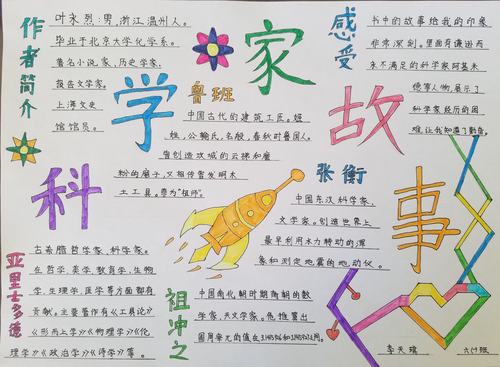 作者简介
叶永烈:男,浙江温州人。
毕业于北京大学化学系。
著名小说家、历史学家、
报告文学家。
上海文史
馆馆员。
科学家故事
感受
书中的故事给我的印象
非常深刻。里面有谦逊而
永不满足的科学家阿基米
德等人物,展示了
科学家经历的困
难,让我知道了勤奋。
鲁班
中国古代的建筑工匠。姬
姓,公输氏,名般,春秋时鲁国人。
曾创造攻城的云梯和磨
粉的磨子,又相传曾发明木
土工具。尊为“祖师”。
张衡
中国东汉科学家、
文学家。创造世界上
最早利用水力转动的浑
象和测定地震的地动仪。
亚里士多德
古希腊哲学家、科学家。
在哲学、美学、教育学、生物
学、生理学、医学等方面都有
贡献。主要著作有《工具论》
《形而上学》《物理学》《伦
理学》《政治学》《诗学》等。
祖冲之
中国南北朝时期南朝的数
学家、天文学家。他推算出
圆周率π的值在3.1415926和3.1415927之间。
李天瑞
六(1)班